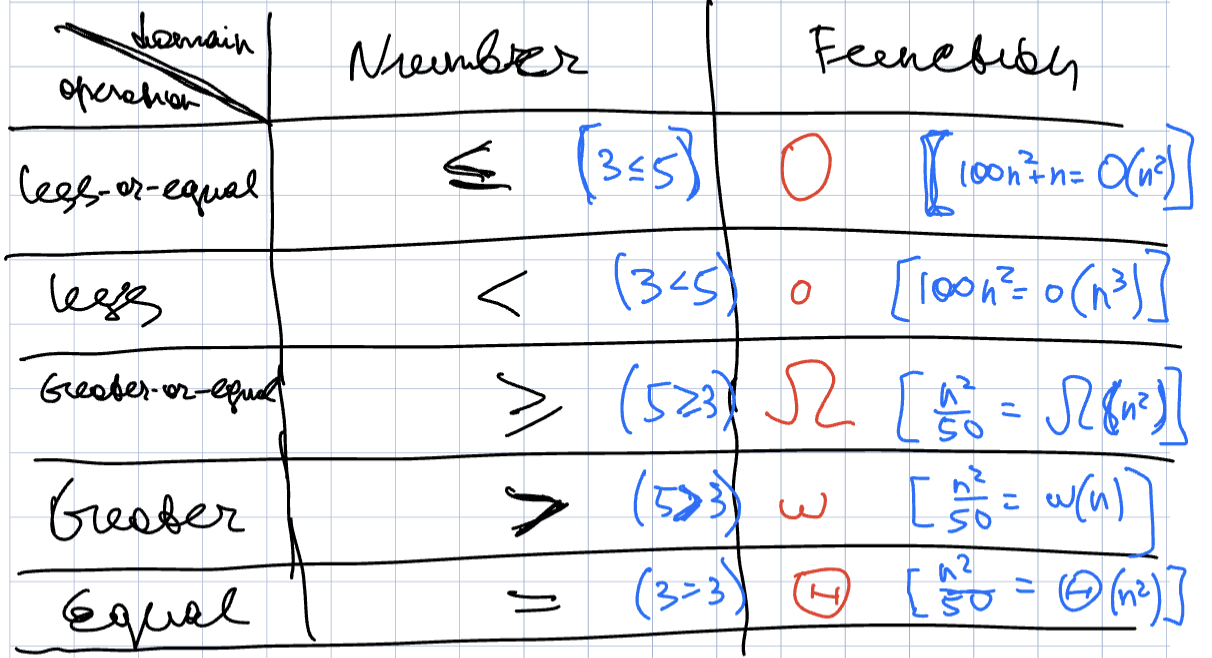 domain
operation
Number
Function
less-or-equal ≤ (3≤5) O [100n²+n= O(n²)]
less < (3<5) o [100n²= o(n³)]
Greater-or-equal ≥ (5≥3) Ω [n²/50 = Ω(n²)]
Greater > (5>3) ω [n²/50 = ω(n)]
Equal = (3=3) Θ [n²/50 = Θ(n²)]